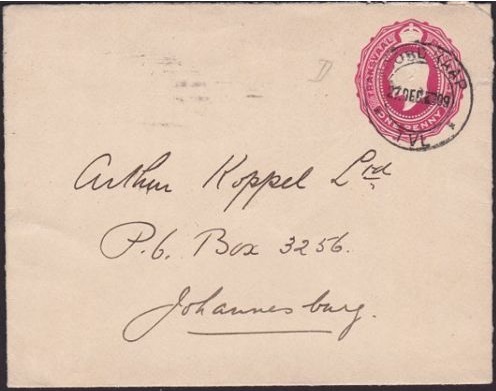 TRANSVAAL
ONE PENNY
27 DEC 09
D
Arthur Koppel Ltd
P.O. Box 3256.
Johannesburg.